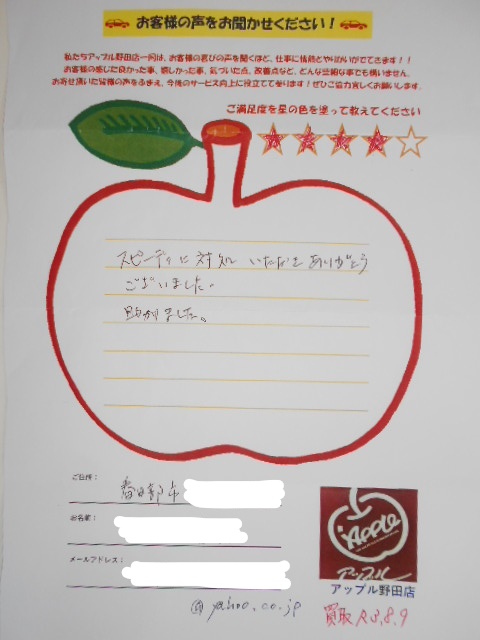 お客様の声をお聞かせください！
私たちアップル野田店一同は、お客様の喜びの声を聞くほど、仕事に情熱とやりがいがでてきます！！
お客様の感じた良かった事、嬉しかった事、気づいた点、改善点など、どんな些細な事でも構いません。
お寄せ頂いた皆様の声をふまえ、今後のサービス向上に役立てて参ります！ぜひご協力宜しくお願いします。
ご満足度を星の色を塗って教えてください
スピーディに対処いただきありがとう
ございました。
助かりました。
ご住所：
春日部市
お名前：
メールアドレス：
@yahoo.co.jp
APPLE
アップル
アップル野田店
買取 R3.8.9